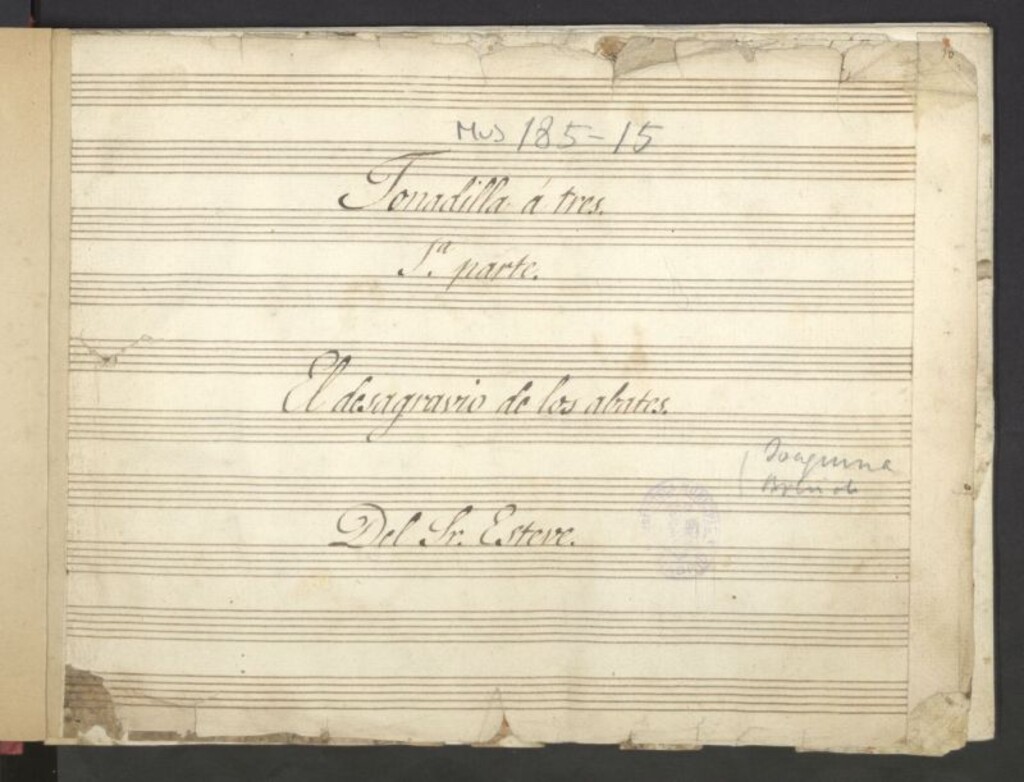 Mus 185-15
Tonadilla á tres.
1.ª parte.
El desagravio de los abates.
Del Sr. Esteve.